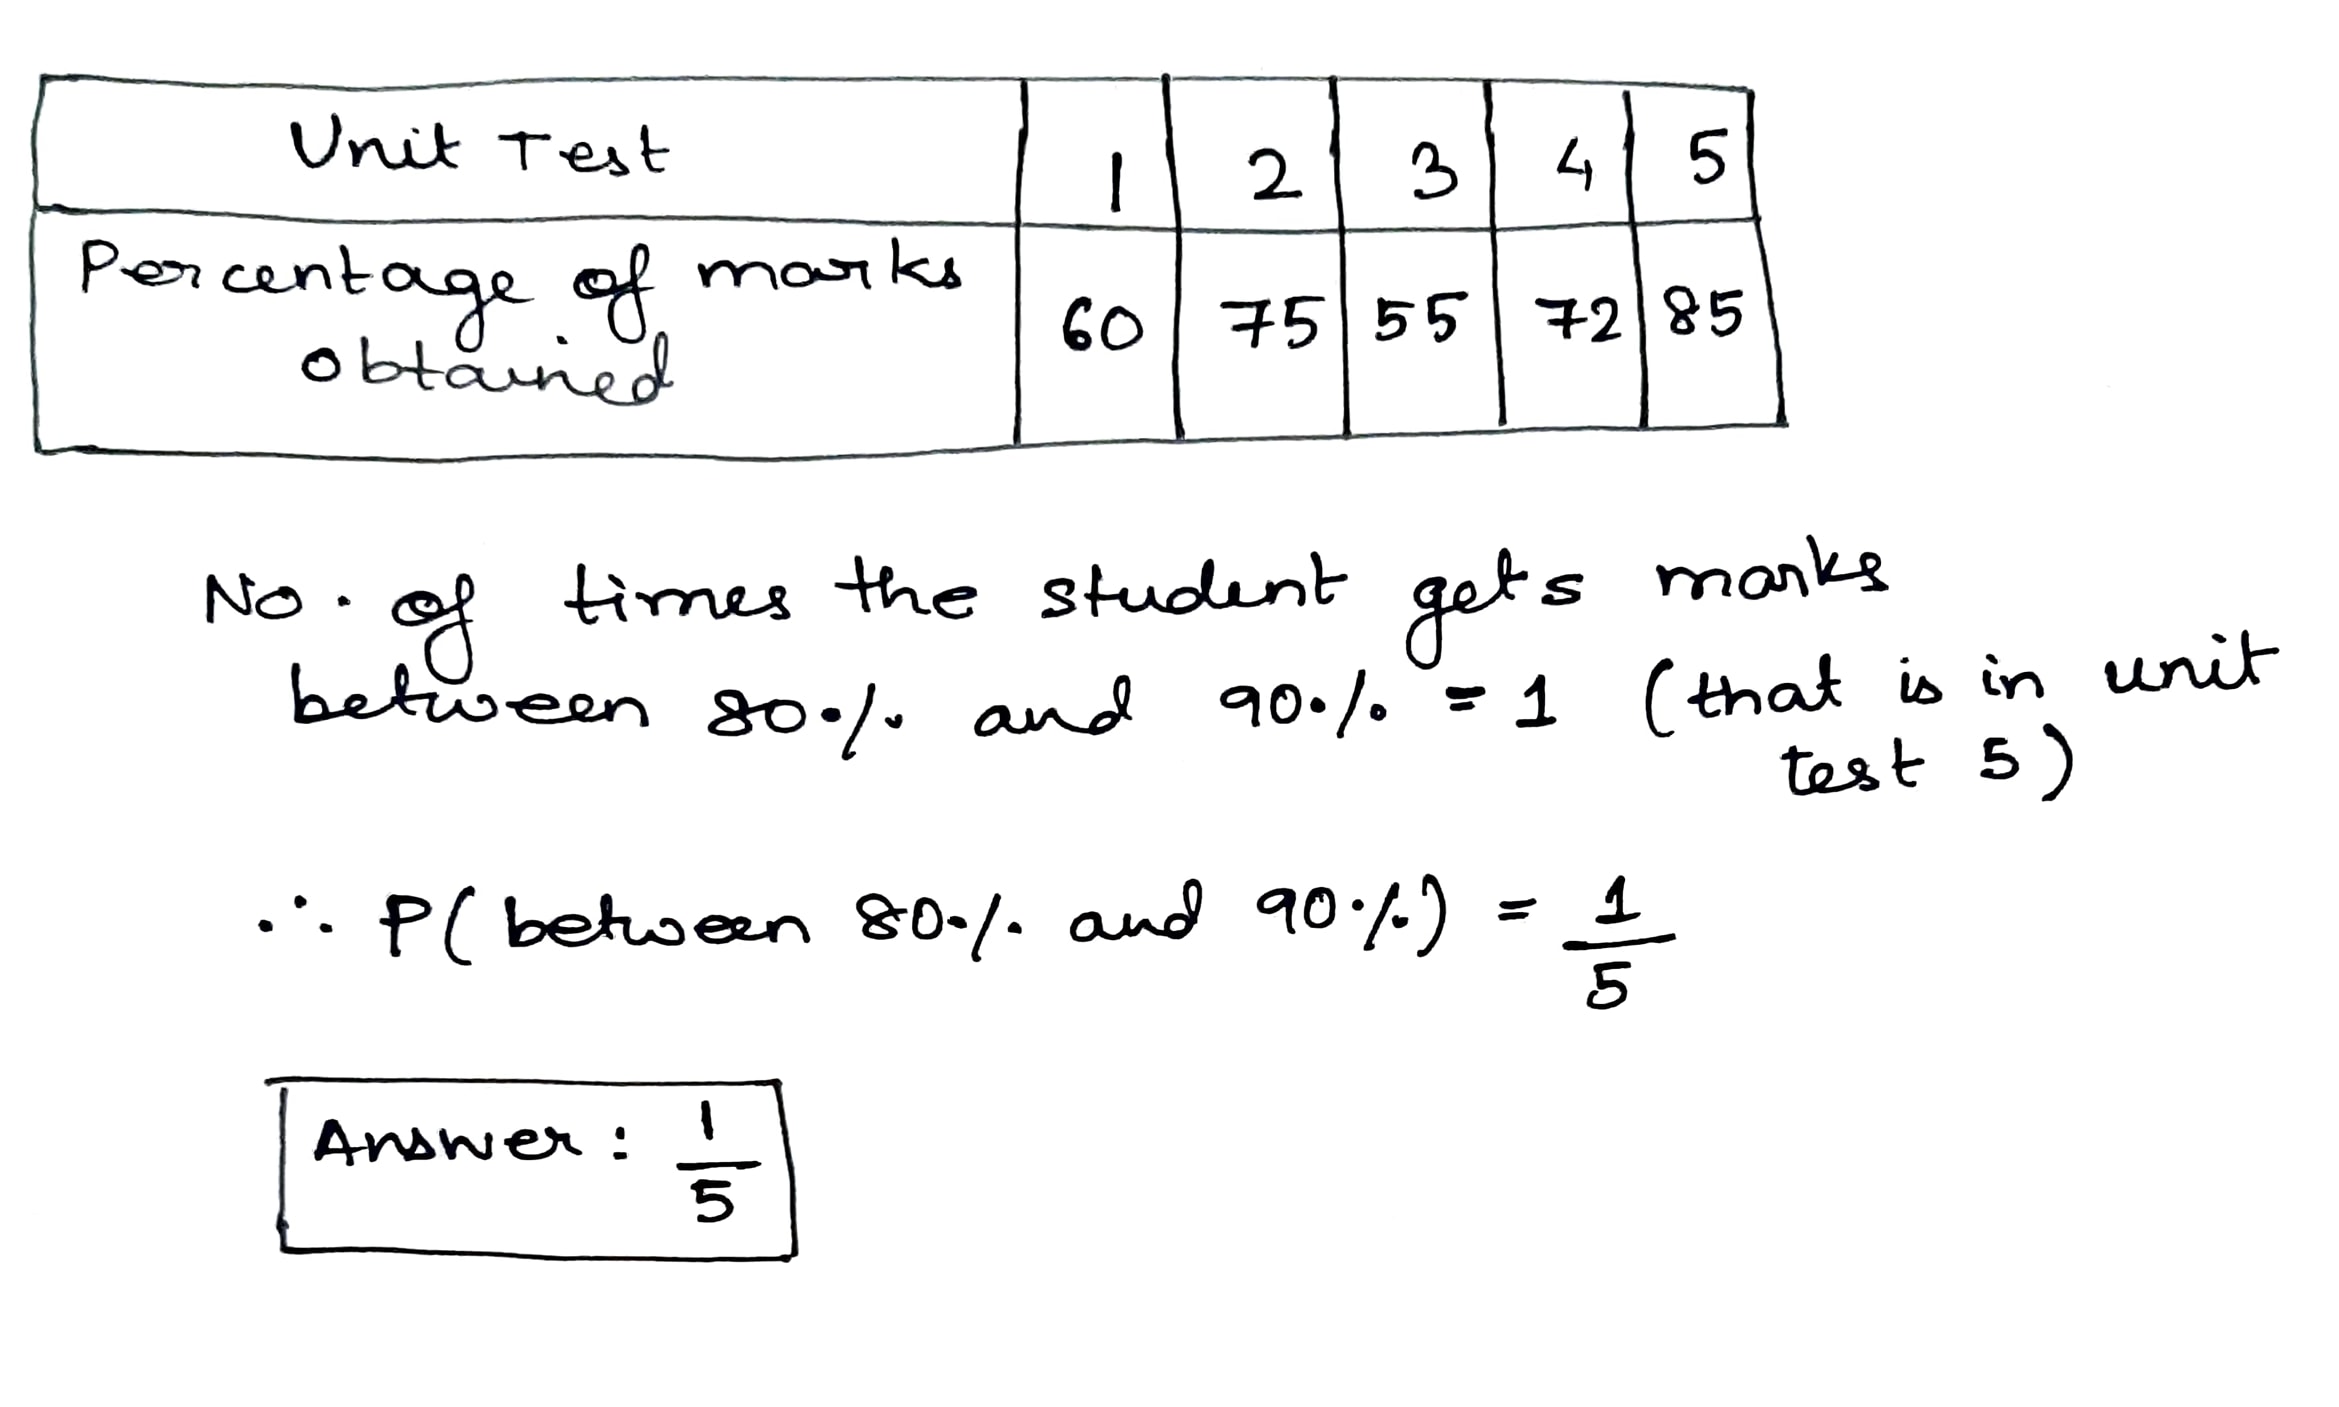 Unit Test 1 2 3 4 5
Percentage of marks
obtained 60 75 55 72 85
No. of times the student gets marks
between 80% and 90% = 1 (that is in unit
test 5)
∴ P(between 80% and 90%) = 1/5
Answer: 1/5